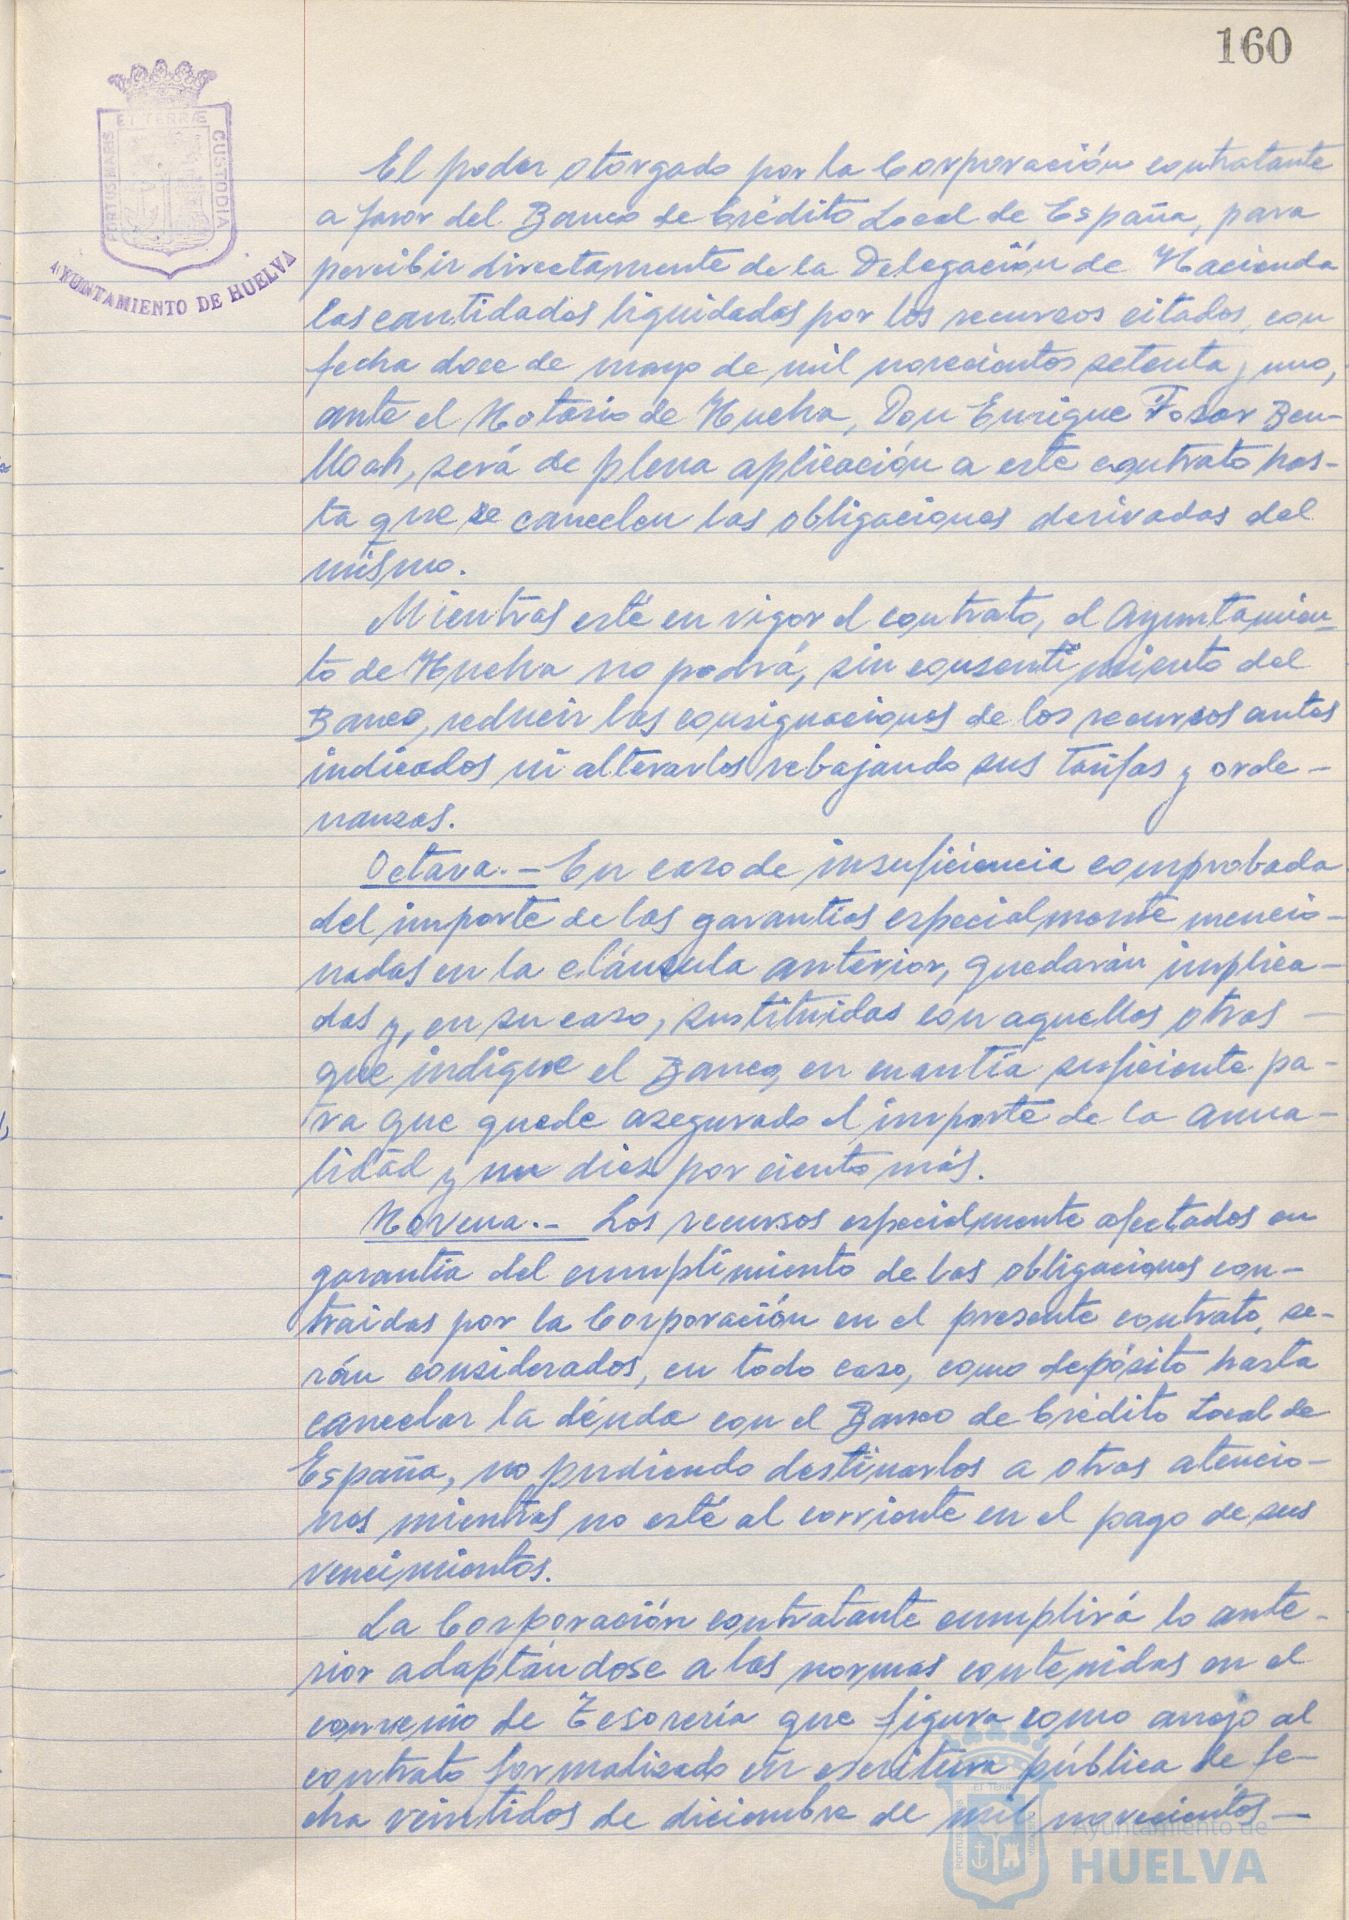 160
PORTUS MARIS
ET TERRÆ
CUSTODIA
AYUNTAMIENTO DE HUELVA
El poder otorgado por la Corporación contratante
a favor del Banco de Crédito Local de España, para
percibir directamente de la Delegación de Hacienda
las cantidades liquidadas por los recursos citados, con
fecha doce de mayo de mil novecientos setenta y uno,
ante el Notario de Huelva, Don Enrique Fosar Ben-
lloch, será de plena aplicación a este contrato has-
ta que se cancelen las obligaciones derivadas del
mismo.
Mientras esté en vigor el contrato, el Ayuntamien-
to de Huelva no podrá, sin consentimiento del
Banco, reducir las consignaciones de los recursos antes
indicados ni alterarlos rebajando sus tarifas y orde-
nanzas.
Octava.- En caso de insuficiencia comprobada
del importe de las garantías especialmente mencio-
nadas en la cláusula anterior, quedarán implica-
das y, en su caso, sustituidas con aquellas otras
que indique el Banco, en cuantía suficiente pa-
ra que quede asegurado el importe de la anua-
lidad y un diez por ciento más.
Novena.- Los recursos especialmente afectados en
garantía del cumplimiento de las obligaciones con-
traidas por la Corporación en el presente contrato, se-
rán considerados, en todo caso, como depósito hasta
cancelar la deuda con el Banco de Crédito Local de
España, no pudiendo destinarlos a otras atencio-
nes mientras no esté al corriente en el pago de sus
vencimientos.
La Corporación contratante cumplirá lo ante-
rior adaptándose a las normas contenidas en el
convenio de Tesorería que figura como anejo al
contrato formalizado en escritura pública de fe-
cha veintidos de diciembre de mil novecientos
Ayuntamiento de
HUELVA